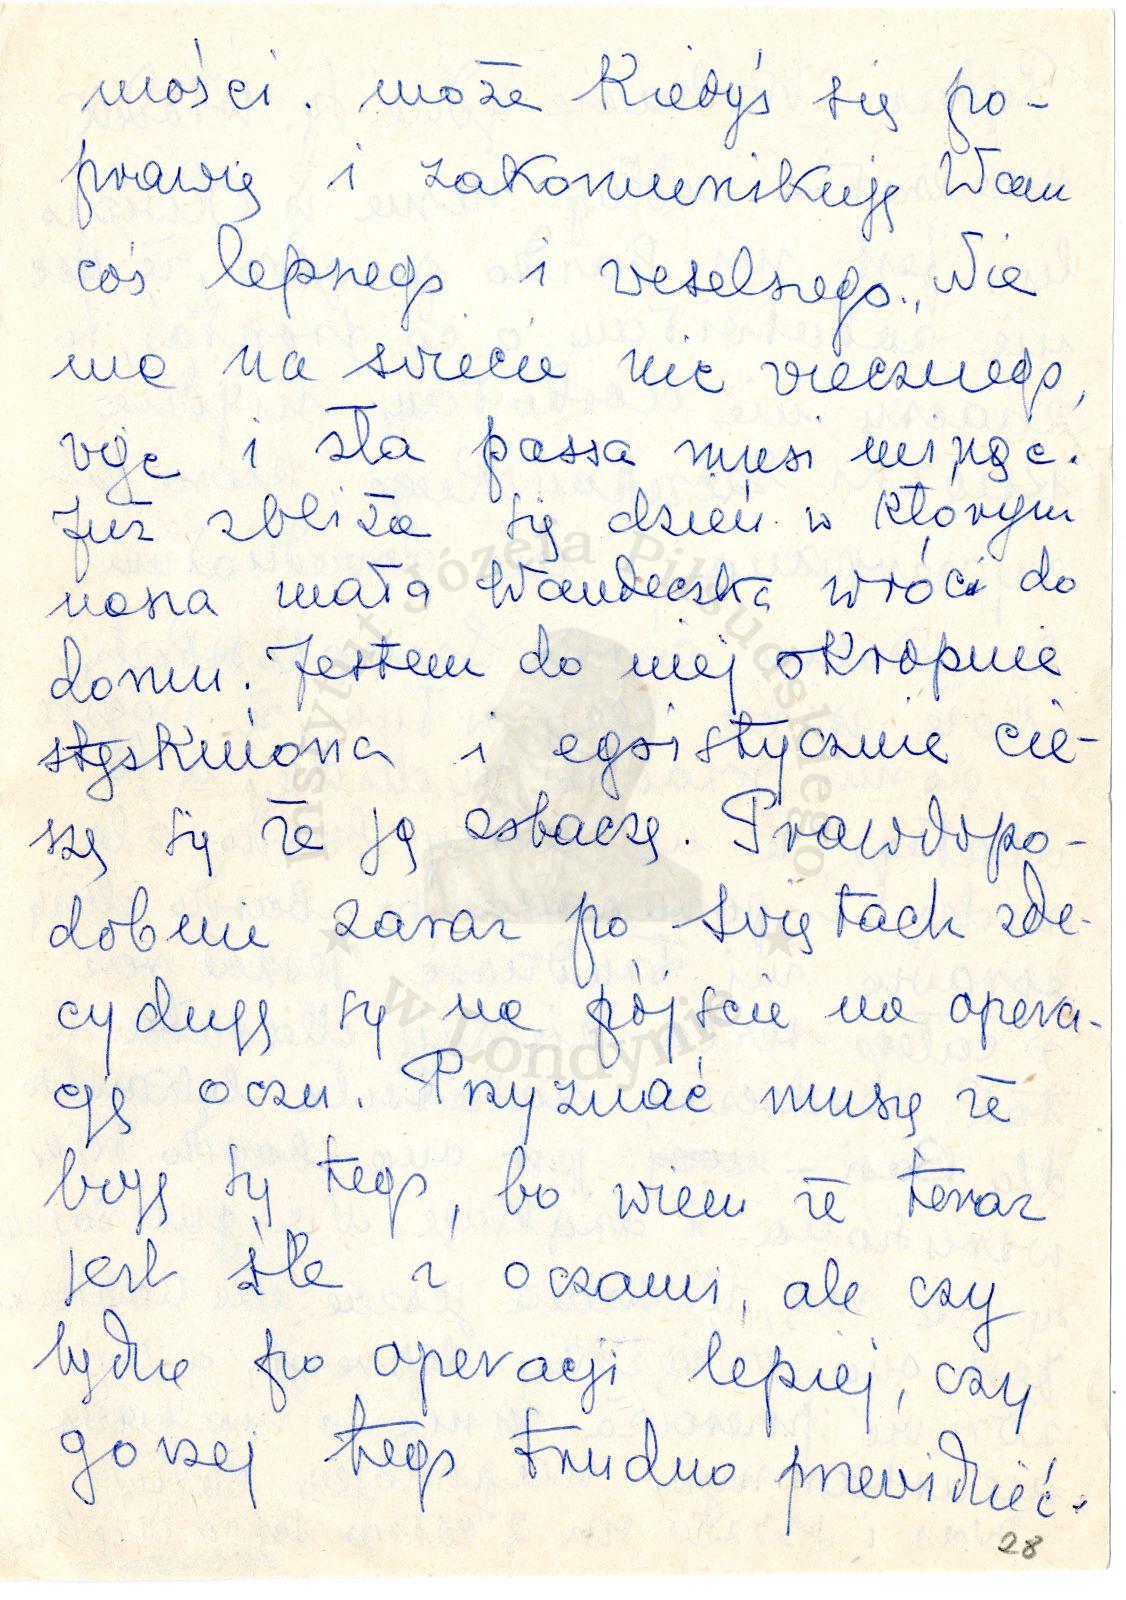 mości. może kiedyś się po-
prawię i zakomunikuję Wam
coś lepszego i weselszego. „Nie
ma na świecie nic wiecznego,
więc i zła passa musi minąć.
Już zbliża się dzień w którym
nasza mała Wandeczka wróci do
domu. Jestem do niej okropnie
stęskniona i egoistycznie cie-
szę się że ją zobaczę. Prawdopo-
dobnie zaraz po świętach zde-
cyduję się na pójście na opera-
cję oczu. Przyznać muszę że
boję się tego, bo wiem że teraz
jest źle z oczami, ale czy
będzie po operacji lepiej, czy
gorzej tego trudno przewidzieć.
28
Instytut Józefa Piłsudskiego
w Londynie